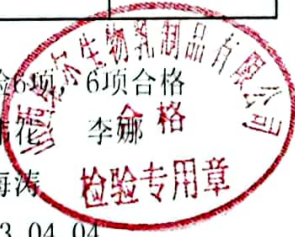 检6项，6项合格
花 李娜
海涛
3.04.04
生物乳制品有限公司
合格
检验专用章